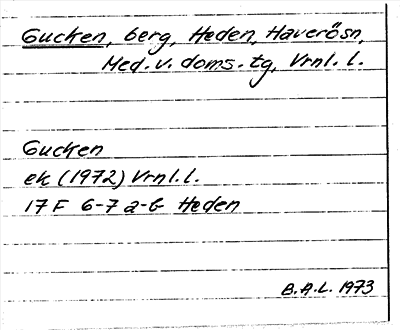 Gucken, berg, Heden, Haverösn,
Med. v. doms. tg, Vrnl. l.
Gucken
ek (1972) Vrnl. l.
17 F 6-7 a-b Heden
B.A.L. 1973